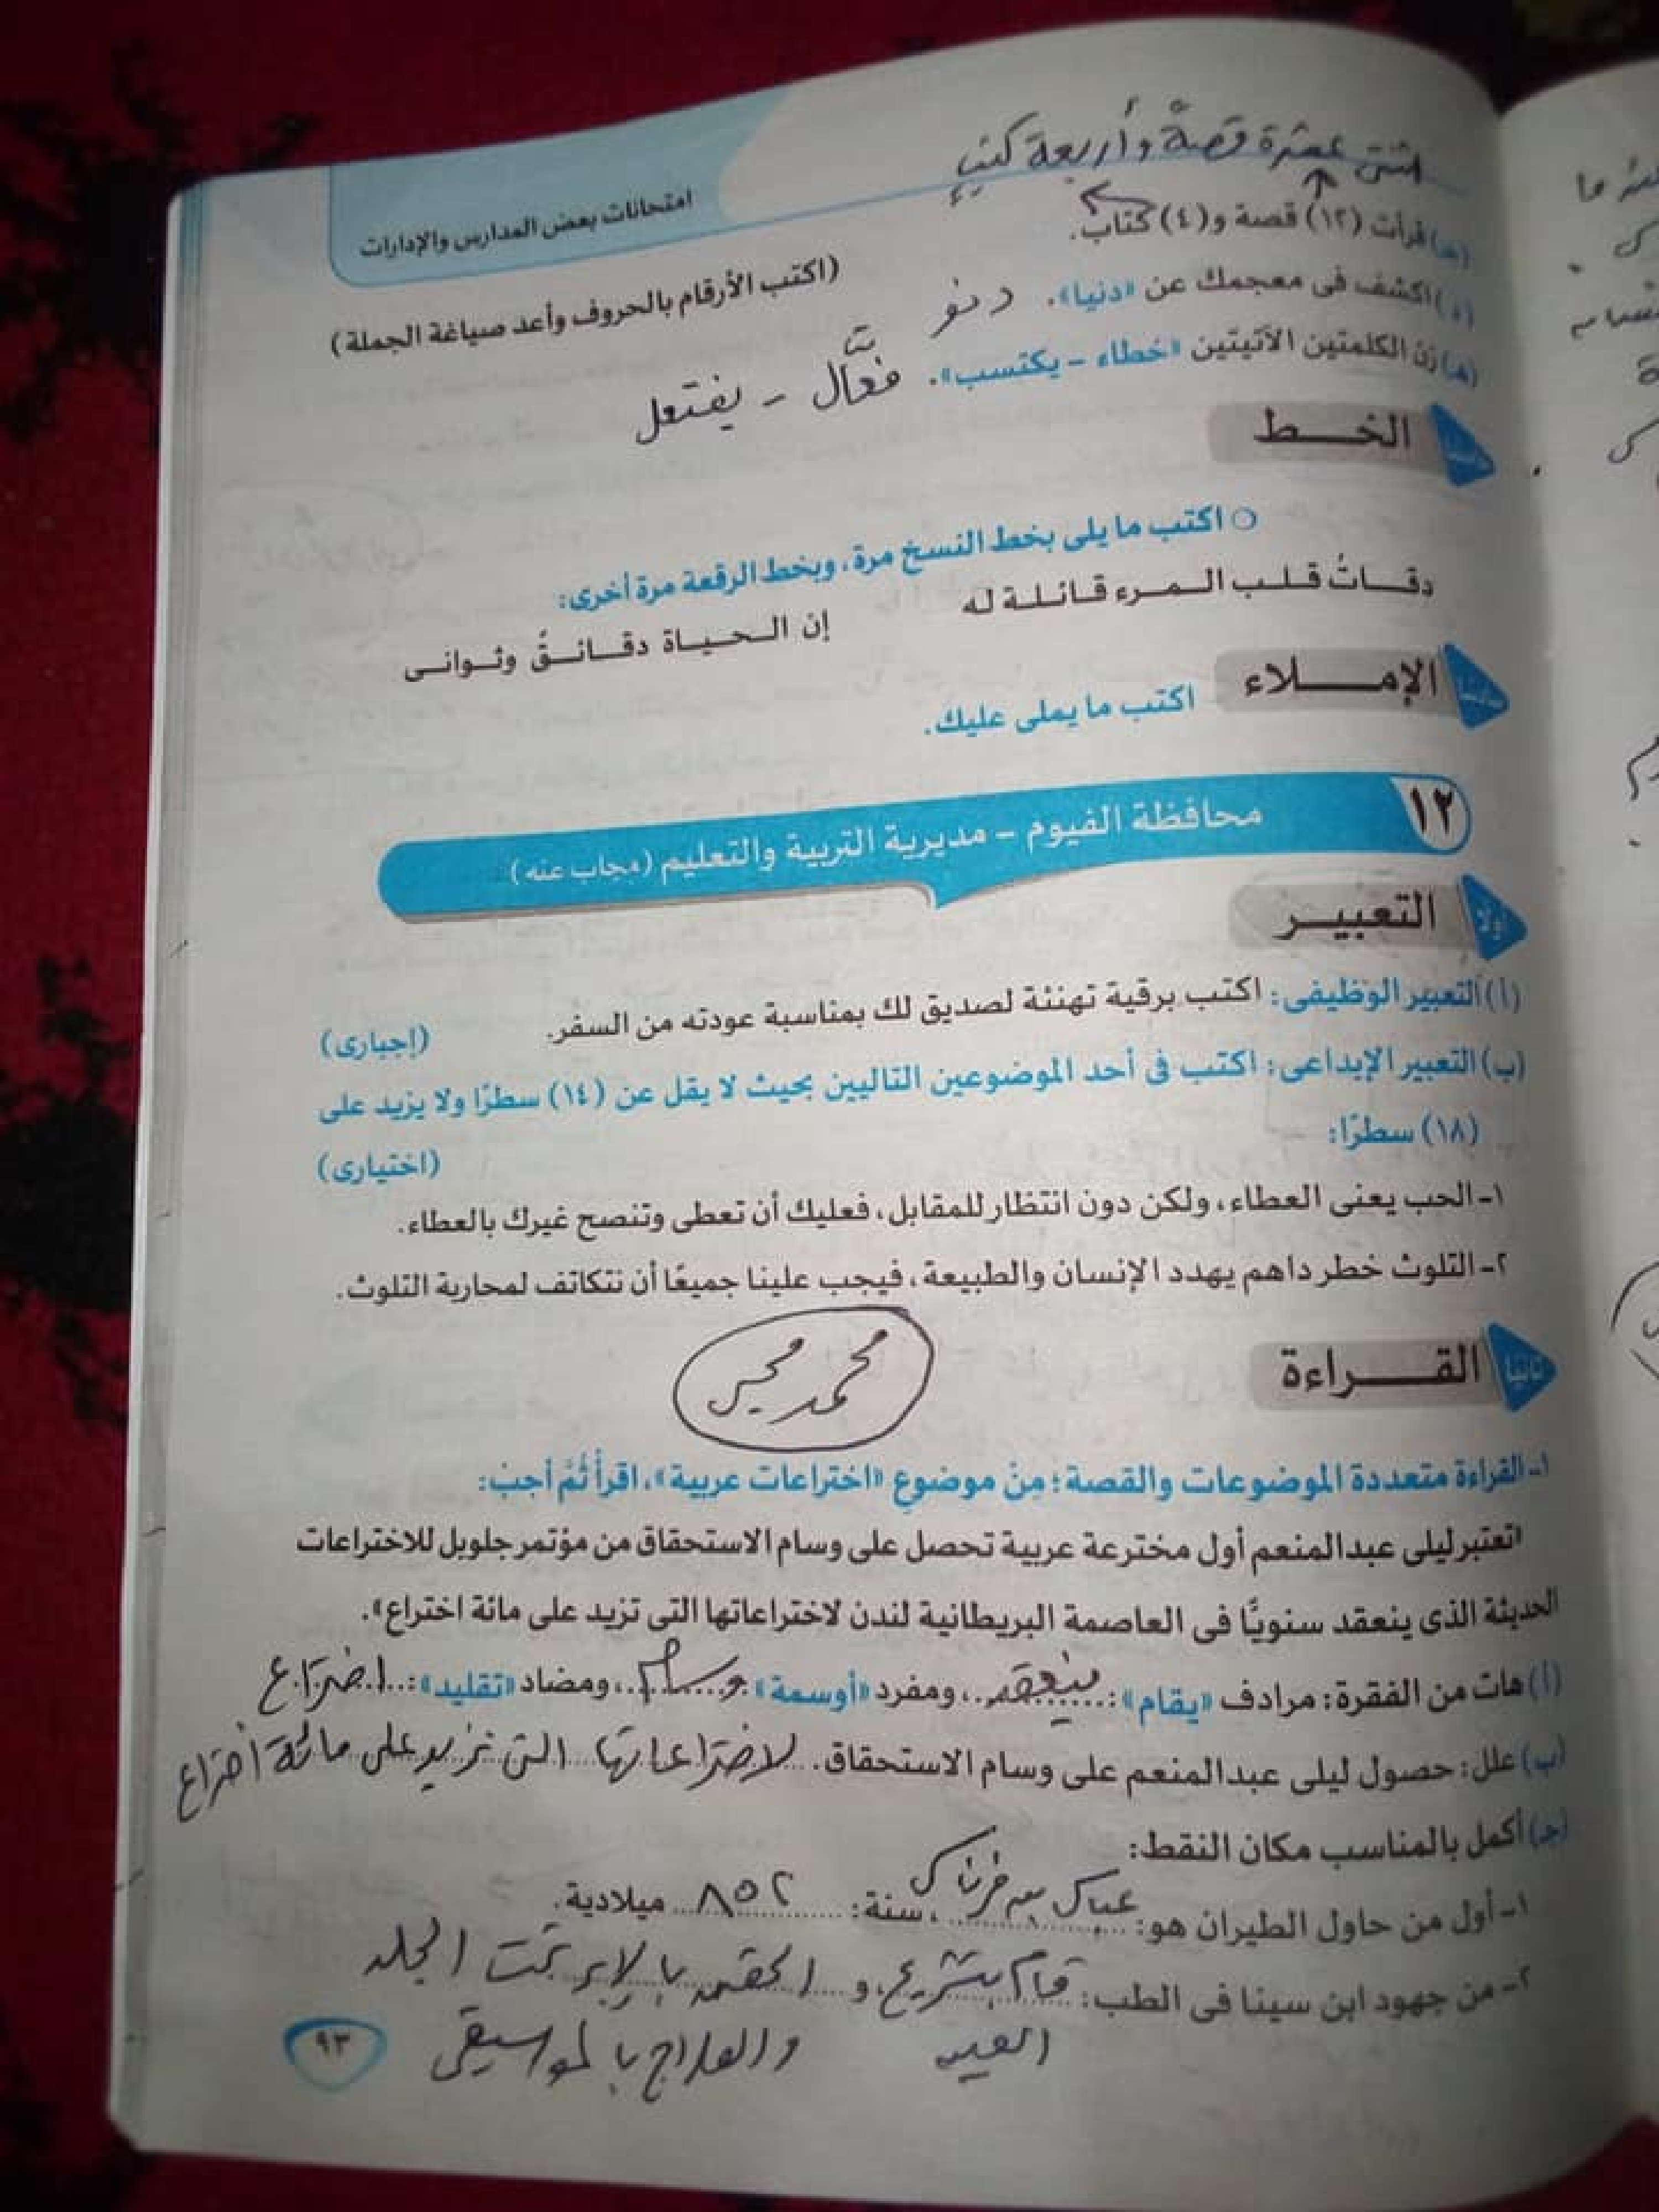 امتحانات بعض المدارس والإدارات
اثنتى عشرة قصةً وأربعة كتبٍ
(جـ) قرأت (١٢) قصة و(٤) كتاب.
(اكتب الأرقام بالحروف وأعد صياغة الجملة)
(د) اكشف فى معجمك عن «دنيا». دنو
(هـ) زن الكلمتين الآتيتين «خطاء - يكتسب». فعَّال - يفتعل
الخـــط
○ اكتب ما يلى بخط النسخ مرة، وبخط الرقعة مرة أخرى:
دقـــاتُ قـلـب الـمـرء قـائـلـة له
إن الـحـيـاة دقـائـقٌ وثـوانـى
الإمـــلاء
اكتب ما يملى عليك.
١٢ محافظة الفيوم - مديرية التربية والتعليم (مجاب عنه)
أولا التعبيـر
(أ) التعبير الوظيفى: اكتب برقية تهنئة لصديق لك بمناسبة عودته من السفر.
(إجبارى)
(ب) التعبير الإبداعى: اكتب فى أحد الموضوعين التاليين بحيث لا يقل عن (١٤) سطرًا ولا يزيد على
(١٨) سطرًا:
(اختيارى)
١- الحب يعنى العطاء، ولكن دون انتظار للمقابل، فعليك أن تعطى وتنصح غيرك بالعطاء.
٢- التلوث خطر داهم يهدد الإنسان والطبيعة، فيجب علينا جميعًا أن نتكاتف لمحاربة التلوث.
ثانيا القـــراءة
محمد
١- القراءة متعددة الموضوعات والقصة؛ مِنْ موضوع «اختراعات عربية»، اقرأ ثُمَّ أجبْ:
«تعتبر ليلى عبدالمنعم أول مخترعة عربية تحصل على وسام الاستحقاق من مؤتمر جلوبل للاختراعات
الحديثة الذى ينعقد سنويًّا فى العاصمة البريطانية لندن لاختراعاتها التى تزيد على مائة اختراع».
(أ) هات من الفقرة: مرادف «يقام»: ينعقد، ومفرد «أوسمة»: وسام، ومضاد «تقليد»: اختراع
(ب) علل: حصول ليلى عبدالمنعم على وسام الاستحقاق. لاختراعاتها التى تزيد على مائة اختراع
(جـ) أكمل بالمناسب مكان النقط:
١- أول من حاول الطيران هو: عباس بن فرناس، سنة: ٨٥٢ ميلادية.
٢- من جهود ابن سينا فى الطب: قام بتشريح، و الحقن بالإبر تحت الجلد
العين والعلاج بالموسيقى
٩٣